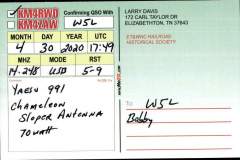 KM4RWO
KM4ZAW
Confirming QSO With W5L
MONTH DAY YEAR UTC
4 30 2020 17:49
MHZ MODE RST
14.248 USB 5-9
YAESU 991
CHAMELEON
SLOPER ANTENNA
70 WATT
LARRY DAVIS
172 CARL TAYLOR DR
ELIZABETHTON, TN 37643
ETOWAH RAILROAD
HISTORICAL SOCIETY
To W5L
Bobby